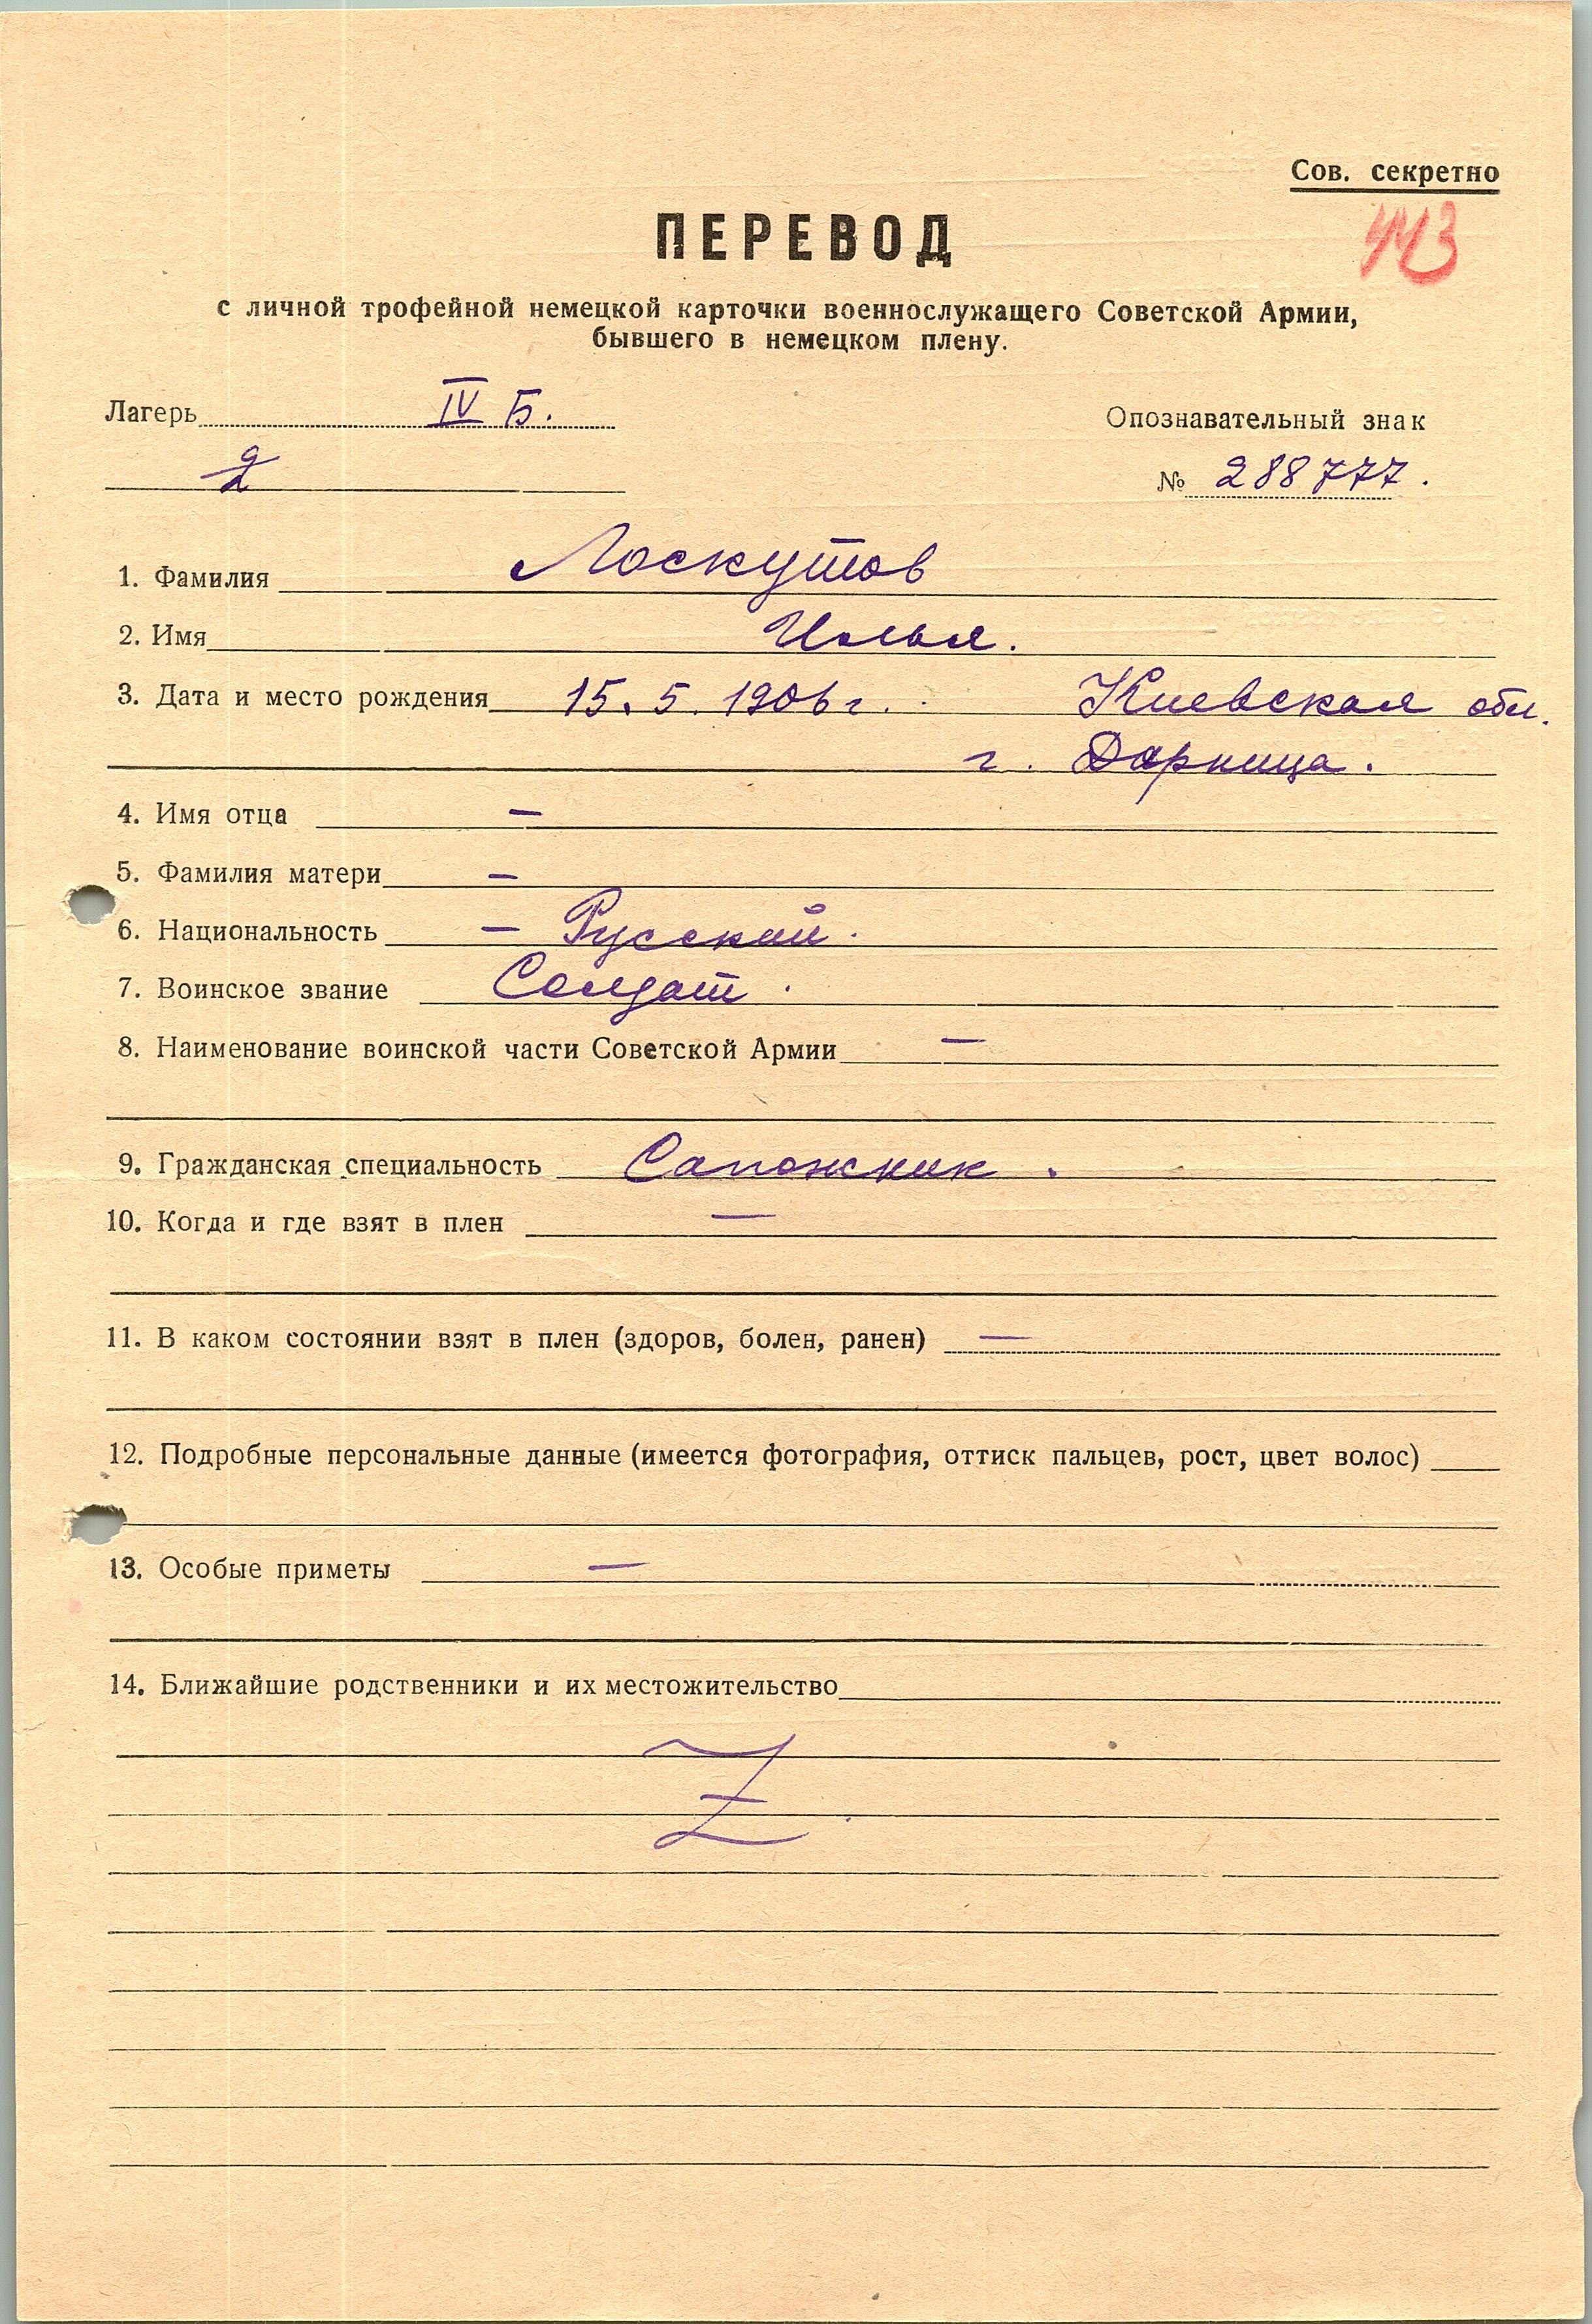 Сов. секретно
ПЕРЕВОД
с личной трофейной немецкой карточки военнослужащего Советской Армии,
бывшего в немецком плену.
Лагерь IV Б.
Опознавательный знак
2
№ 288777.
1. Фамилия Лоскутов
2. Имя Илья.
3. Дата и место рождения 15.5.1906 г. Киевская обл.
г. Дарница.
4. Имя отца —
5. Фамилия матери —
6. Национальность — Русский.
7. Воинское звание Солдат.
8. Наименование воинской части Советской Армии —
9. Гражданская специальность Сапожник.
10. Когда и где взят в плен —
11. В каком состоянии взят в плен (здоров, болен, ранен) —
12. Подробные персональные данные (имеется фотография, оттиск пальцев, рост, цвет волос)
13. Особые приметы —
14. Ближайшие родственники и их местожительство
Z